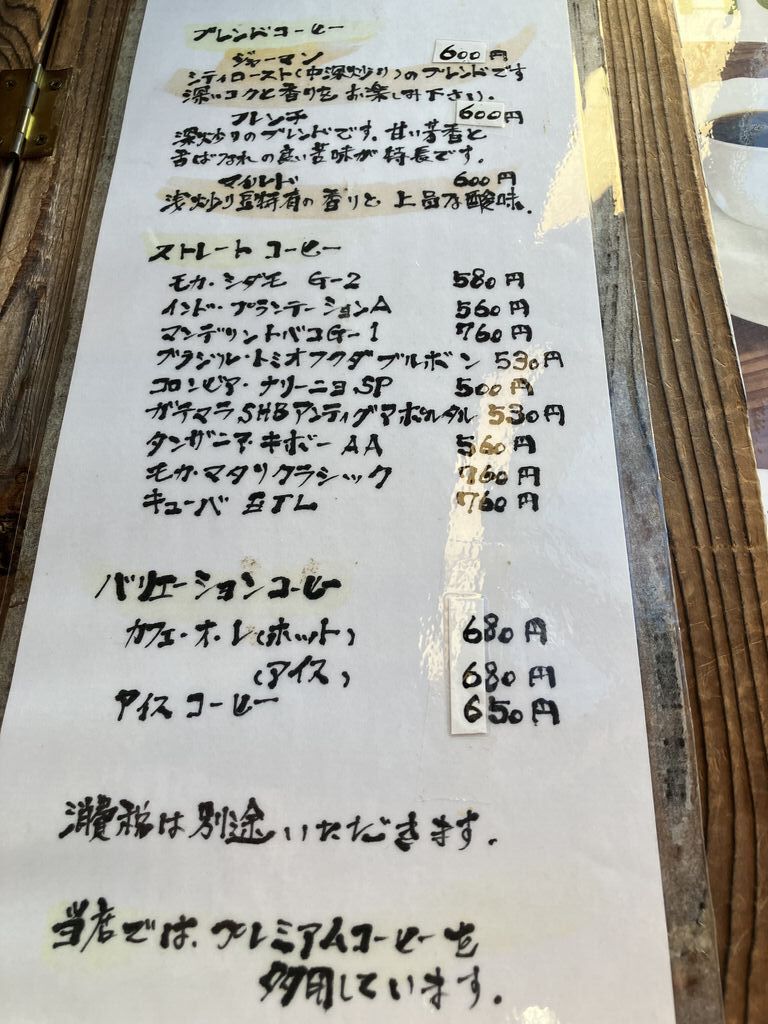 ブレンドコーヒー
ジャーマン 600円
シティロースト(中深炒り)のブレンドです
深いコクと香りを お楽しみ下さい。
フレンチ 600円
深炒りのブレンドです。甘い芳香と
舌ばなれの良い苦味が特長です。
マイルド 600円
浅炒り豆特有の香りと 上品な酸味。
ストレートコーヒー
モカ・シダモ G-2 580円
インド・プランテーションA 560円
マンデリントバコG-1 760円
ブラジル・トミオフクダブルボン 530円
コロンビア・ナリーニョSP 500円
ガテマラSHBアンティグアポルタル 530円
タンザニア・キボーAA 560円
モカ・マタリクラシック 760円
キューバ ETL 760円
バリエーションコーヒー
カフェ・オ・レ(ホット) 680円
(アイス) 680円
アイスコーヒー 650円
消費税は別途いただきます。
当店では、プレミアムコーヒーを
多用しています。